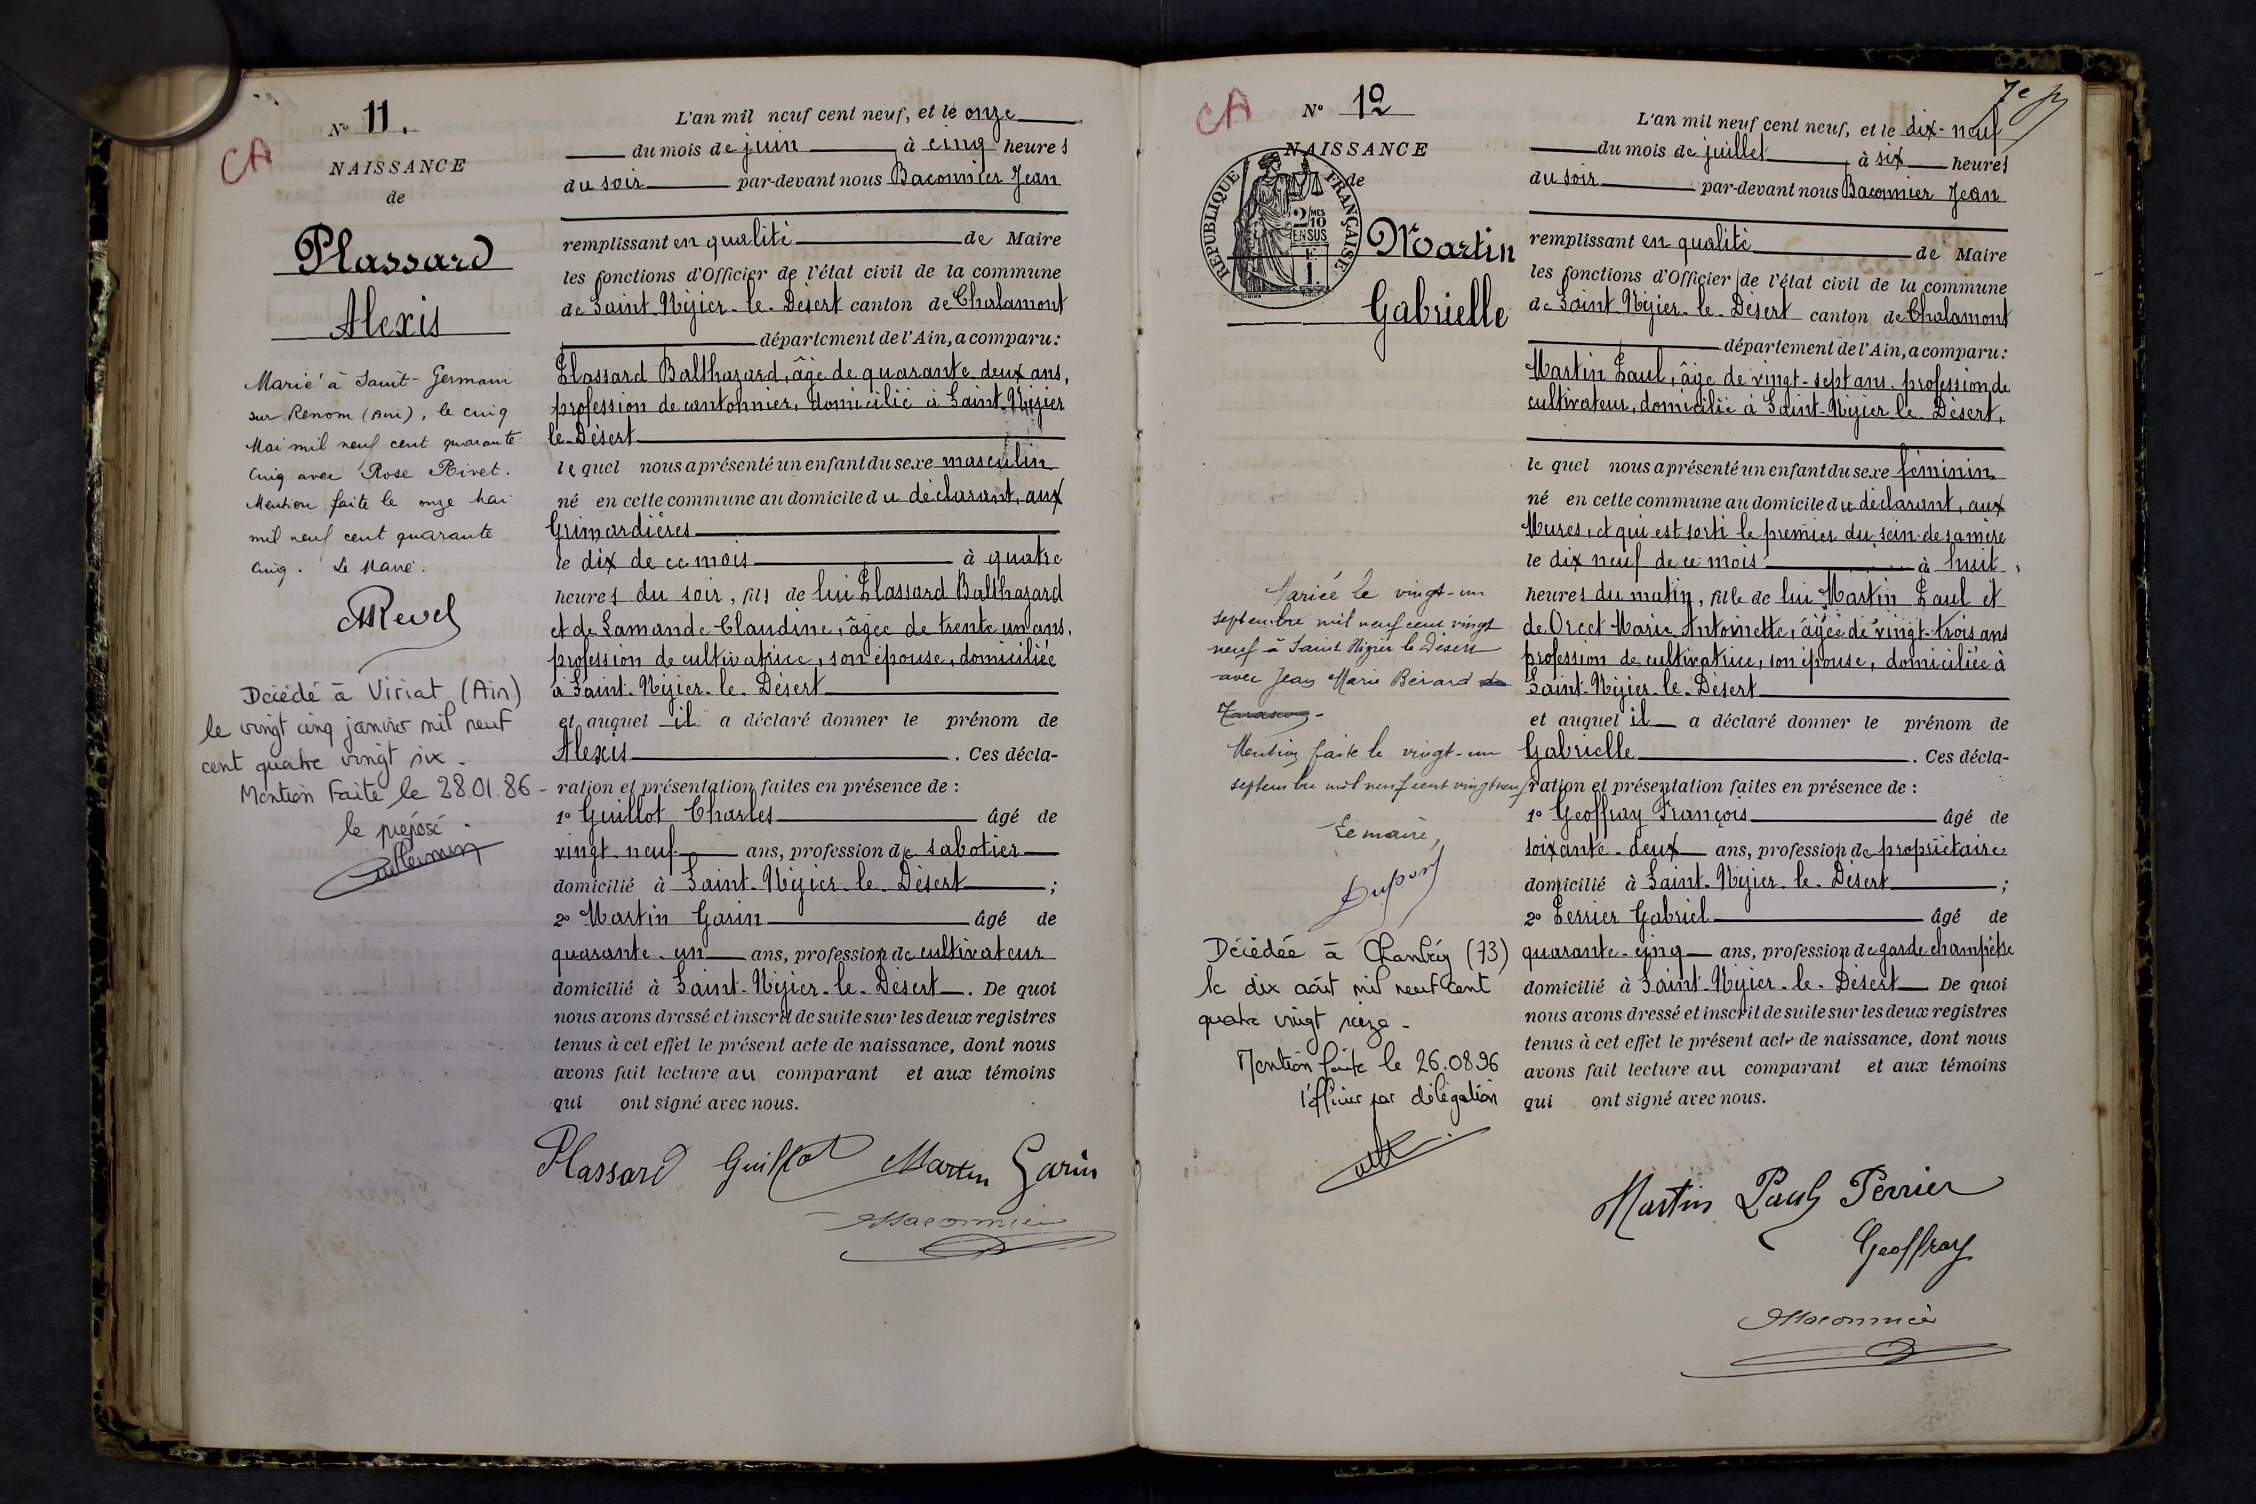 CA
N° 11.
NAISSANCE
de
Plassard
Alexis
Marié à Saint-Germain
sur Renom (Ain), le cinq
Mai mil neuf cent quarante
cinq avec Rose Rivet.
Mention faite le onze mai
mil neuf cent quarante
cinq. Le Maire:
Revel
Décédé à Viriat (Ain)
le vingt cinq janvier mil neuf
cent quatre vingt six -
Mention Faite le 28.01.86 -
le préposé.
L'an mil neuf cent neuf, et le onze
du mois de juin à cinq heures
du soir par-devant nous Baconnier Jean
remplissant en qualité de Maire
les fonctions d'Officier de l'état civil de la commune
de Saint-Nizier-le-Désert canton de Chalamont
département de l'Ain, a comparu:
Plassard Balthazard, âgé de quarante deux ans,
profession de cantonnier, domicilié à Saint-Nizier
le-Désert
lequel nous a présenté un enfant du sexe masculin
né en cette commune au domicile du déclarant, aux
Grimardières
le dix de ce mois à quatre
heures du soir, fils de lui Plassard Balthazard
et de Lamande Claudine, âgée de trente un ans,
profession de cultivatrice, son épouse, domiciliée
à Saint-Nizier-le-Désert
et auquel il a déclaré donner le prénom de
Alexis. Ces décla-
ration et présentation faites en présence de :
1° Guillot Charles âgé de
vingt-neuf ans, profession de sabotier
domicilié à Saint-Nizier-le-Désert ;
2° Martin Garin âgé de
quarante-un ans, profession de cultivateur
domicilié à Saint-Nizier-le-Désert. De quoi
nous avons dressé et inscrit de suite sur les deux registres
tenus à cet effet le présent acte de naissance, dont nous
avons fait lecture au comparant et aux témoins
qui ont signé avec nous.
Plassard Guillot Martin Garin
Baconnier
CA
N° 12
NAISSANCE
de
RÉPUBLIQUE FRANÇAISE
2 MES
10
EN SUS
1
Martin
Gabrielle
Mariée le vingt-un
septembre mil neuf cent vingt
neuf à Saint Nizier le Désert
avec Jean Marie Bérard
Mention faite le vingt-un
septembre mil neuf cent vingt neuf
Le maire,
Dupont
Décédée à Chambéry (73)
le dix août mil neuf cent
quatre vingt seize -
Mention faite le 26.08.96
l'officier par délégation
7e
L'an mil neuf cent neuf, et le dix-neuf
du mois de juillet, à six heures
du soir par-devant nous Baconnier Jean
remplissant en qualité de Maire
les fonctions d'Officier de l'état civil de la commune
de Saint-Nizier-le-Désert canton de Chalamont
département de l'Ain, a comparu:
Martin Paul, âgé de vingt-sept ans, profession de
cultivateur, domicilié à Saint-Nizier le-Désert,
lequel nous a présenté un enfant du sexe féminin
né en cette commune au domicile du déclarant, aux
Mures, et qui est sorti le premier du sein de sa mère
le dix neuf de ce mois à huit
heures du matin, fille de lui Martin Paul et
de Orcet Marie Antoinette, âgée de vingt-trois ans
profession de cultivatrice, son épouse, domiciliée à
Saint-Nizier-le-Désert
et auquel il a déclaré donner le prénom de
Gabrielle. Ces décla-
ration et présentation faites en présence de :
1° Geoffray François âgé de
soixante-deux ans, profession de propriétaire
domicilié à Saint-Nizier-le-Désert ;
2° Perrier Gabriel âgé de
quarante-cinq ans, profession de garde champêtre
domicilié à Saint-Nizier-le-Désert De quoi
nous avons dressé et inscrit de suite sur les deux registres
tenus à cet effet le présent acte de naissance, dont nous
avons fait lecture au comparant et aux témoins
qui ont signé avec nous.
Martin Paul Perrier
Geoffray
Baconnier